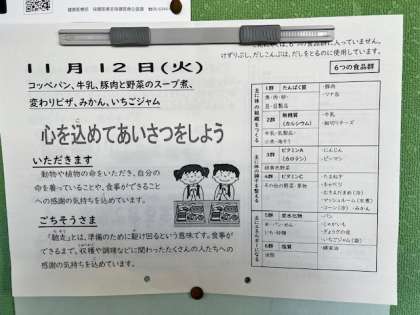 は、6つの食品群に入っていません。
けずりぶし、だしこんぶは、だしをとるのに使用しています。
11月12日(火)
コッペパン、牛乳、豚肉と野菜のスープ煮、
変わりピザ、みかん、いちごジャム
心を込めてあいさつをしよう
いただきます
動物や植物の命をいただき、自分の
命を養っていることや、食事ができること
への感謝の気持ちを込めています。
ごちそうさま
「馳走」とは、準備のために駆け回るという意味です。食事が
できるまで、収穫や調理などに関わったたくさんの人たちへの
感謝の気持ちを込めています。
6つの食品群
1群 たんぱく質
魚・肉・卵・
豆・豆製品
・豚肉
・ツナ缶
2群 無機質
(カルシウム)
牛乳・乳製品・
小魚・海そう
・牛乳
3群 ビタミンA
(カロテン)
緑黄色野菜
・にんじん
・ピーマン
4群 ビタミンC
その他の野菜・果物
・たまねぎ
・キャベツ
・マッシュルーム(水煮)
・コーン(冷)・みかん
5群 炭水化物
米・パン・めん
いも・砂糖
・パン
・じゃがいも
・ぎょうざの皮
・いちごジャム(袋)
6群 脂質
油脂